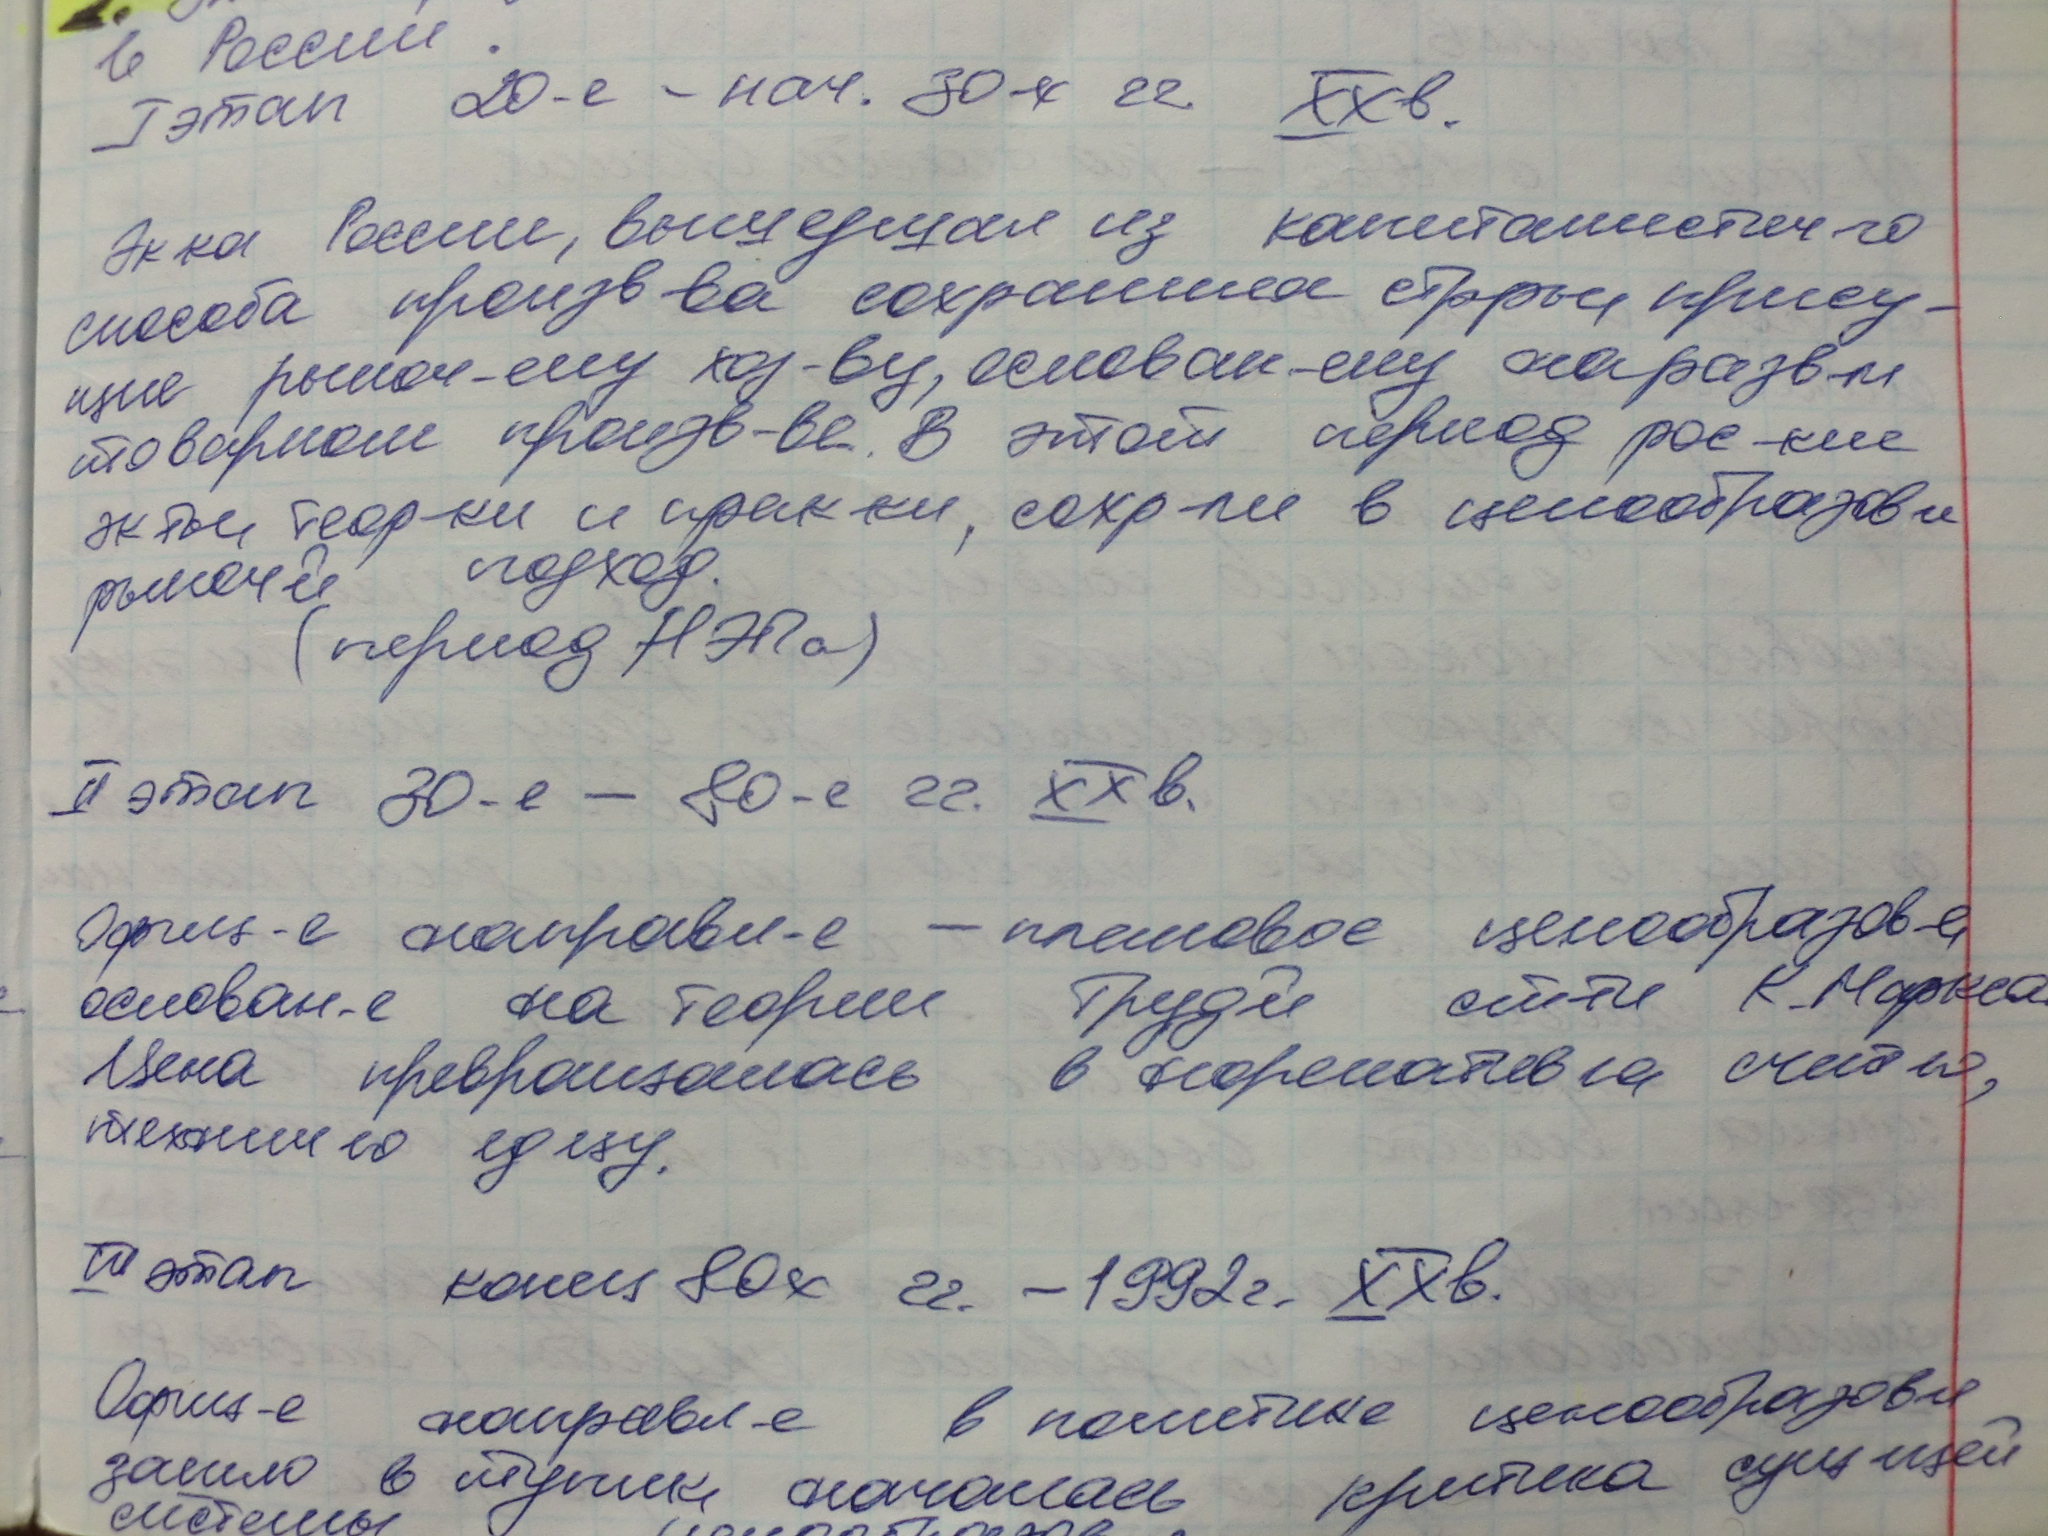 в России.
I этап 20-е - нач. 30-х гг. XXв.
Эк-ка России, вышедшая из капиталистич-го
способа произв-ва сохранила стр-ры, прису-
щие рыноч-ему хоз-ву, основан-ему на разв-м
товарном произв-ве. В этот период рос-кие
эк-ты, теор-ки и прак-ки, сохр-ли в ценообразов-и
рыночй подход.
(период НЭПа)
II этап 30-е - 80-е гг. XXв.
Офиц-е направл-е - плановое ценообразов-е,
основан-е на теории труд-й ст-ти К. Маркса.
Цена превращалась в нормативная счит-ю,
технич-ю ед-цу.
III этап конец 80х гг. - 1992г. XXв.
Офиц-е направл-е в политике ценообразов-я
зашло в тупик началась критика сущ-щей
системы